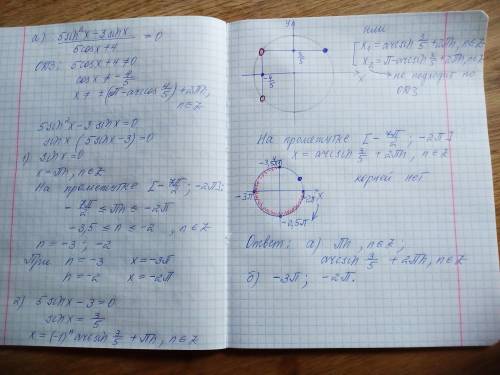 а) (5sin²x - 3sinx)/(5cosx+4) = 0
ОДЗ: 5cosx+4≠0
cosx ≠ -4/5
x ≠ ±(π-arccos 4/5)+2πn,
n∈Z
5sin²x-3sinx=0
sinx(5sinx-3)=0
1) sinx=0
x=πn, n∈Z
На промежутке [-7π/2; -2π]:
-7π/2 ≤ πn ≤ -2π
-3,5 ≤ n ≤ -2, n∈Z
n = -3; -2
При n = -3 x=-3π
n=-2 x=-2π
2) 5sinx-3=0
sinx = 3/5
x=(-1)ⁿ arcsin 3/5 + πn, n∈Z
y
3/5
-4/5
x
или
x₁=arcsin 3/5+2πn, n∈Z
x₂=π-arcsin 3/5+2πn, n∈Z
не подходит по
ОДЗ
На промежутке [-7π/2; -2π]
x = arcsin 3/5 + 2πn, n∈Z
-3,5π
корней нет
-3π
-2π
x
-2,5π
Ответ: а) πn, n∈Z;
arcsin 3/5 + 2πn, n∈Z
б) -3π; -2π.